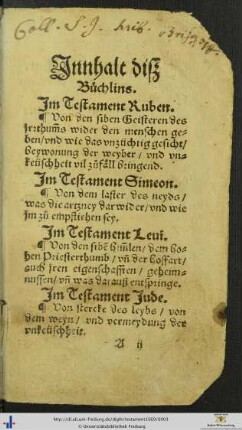 Coll. S. J. frib.
Innhalt diß
Büchlins.
Im Testament Ruben.
¶ Von den siben Geisteren des
jrrthumbs wider den menschen ge-
ben/ vnd wie das vnzüchtig gesicht/
beywonung der weyber / vnd vn-
keüschheit vil zůfäll bringend.
Im Testament Simeon.
¶ Von dem laster des neyds/
was die artzney darwider/ vnd wie
jm zů empfliehen sey.
Im Testament Leui.
¶ Von den sibē himlen/ dem ho-
hen Priesterthumb / vñ der hoffart/
auch jren eigenschafften / geheim-
nussen/ vñ was darauß entspringe.
Im Testament Jude.
¶ Von stercke des leybs / von
dem weyn / vnd vermeydung der
vnkeüschheit.
A ij
© Universitätsbibliothek Freiburg